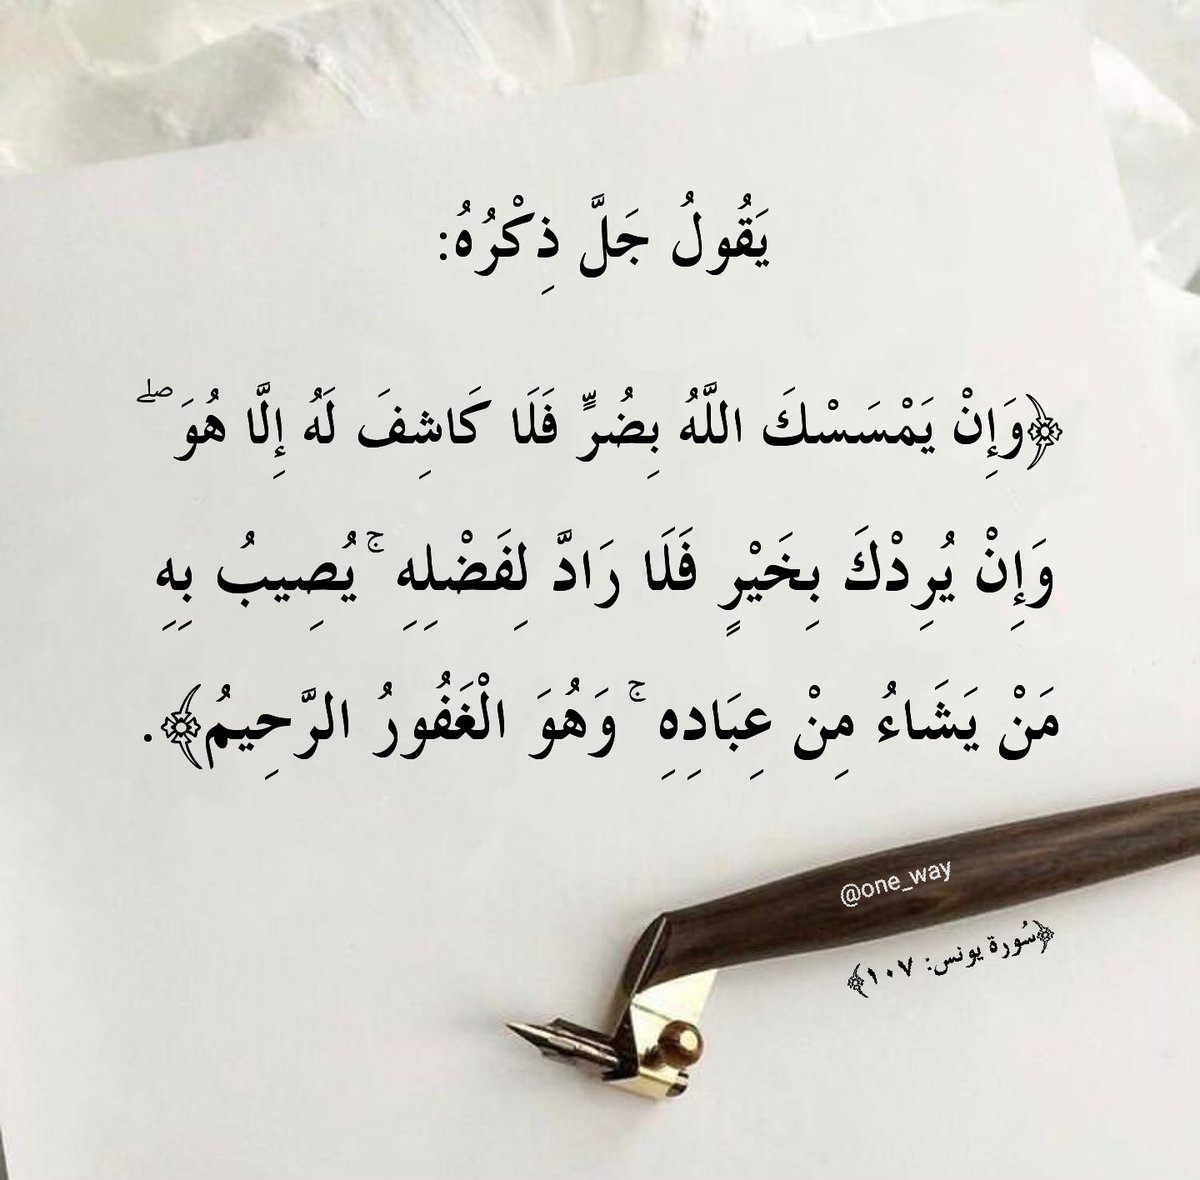 يَقُولُ جَلَّ ذِكْرُهُ:
﴿وَإِنْ يَمْسَسْكَ اللَّهُ بِضُرٍّ فَلَا كَاشِفَ لَهُ إِلَّا هُوَ ۖ
وَإِنْ يُرِدْكَ بِخَيْرٍ فَلَا رَادَّ لِفَضْلِهِ ۚ يُصِيبُ بِهِ
مَنْ يَشَاءُ مِنْ عِبَادِهِ ۚ وَهُوَ الْغَفُورُ الرَّحِيمُ﴾.
@one_way
﴿سُورة يونس: ١٠٧﴾